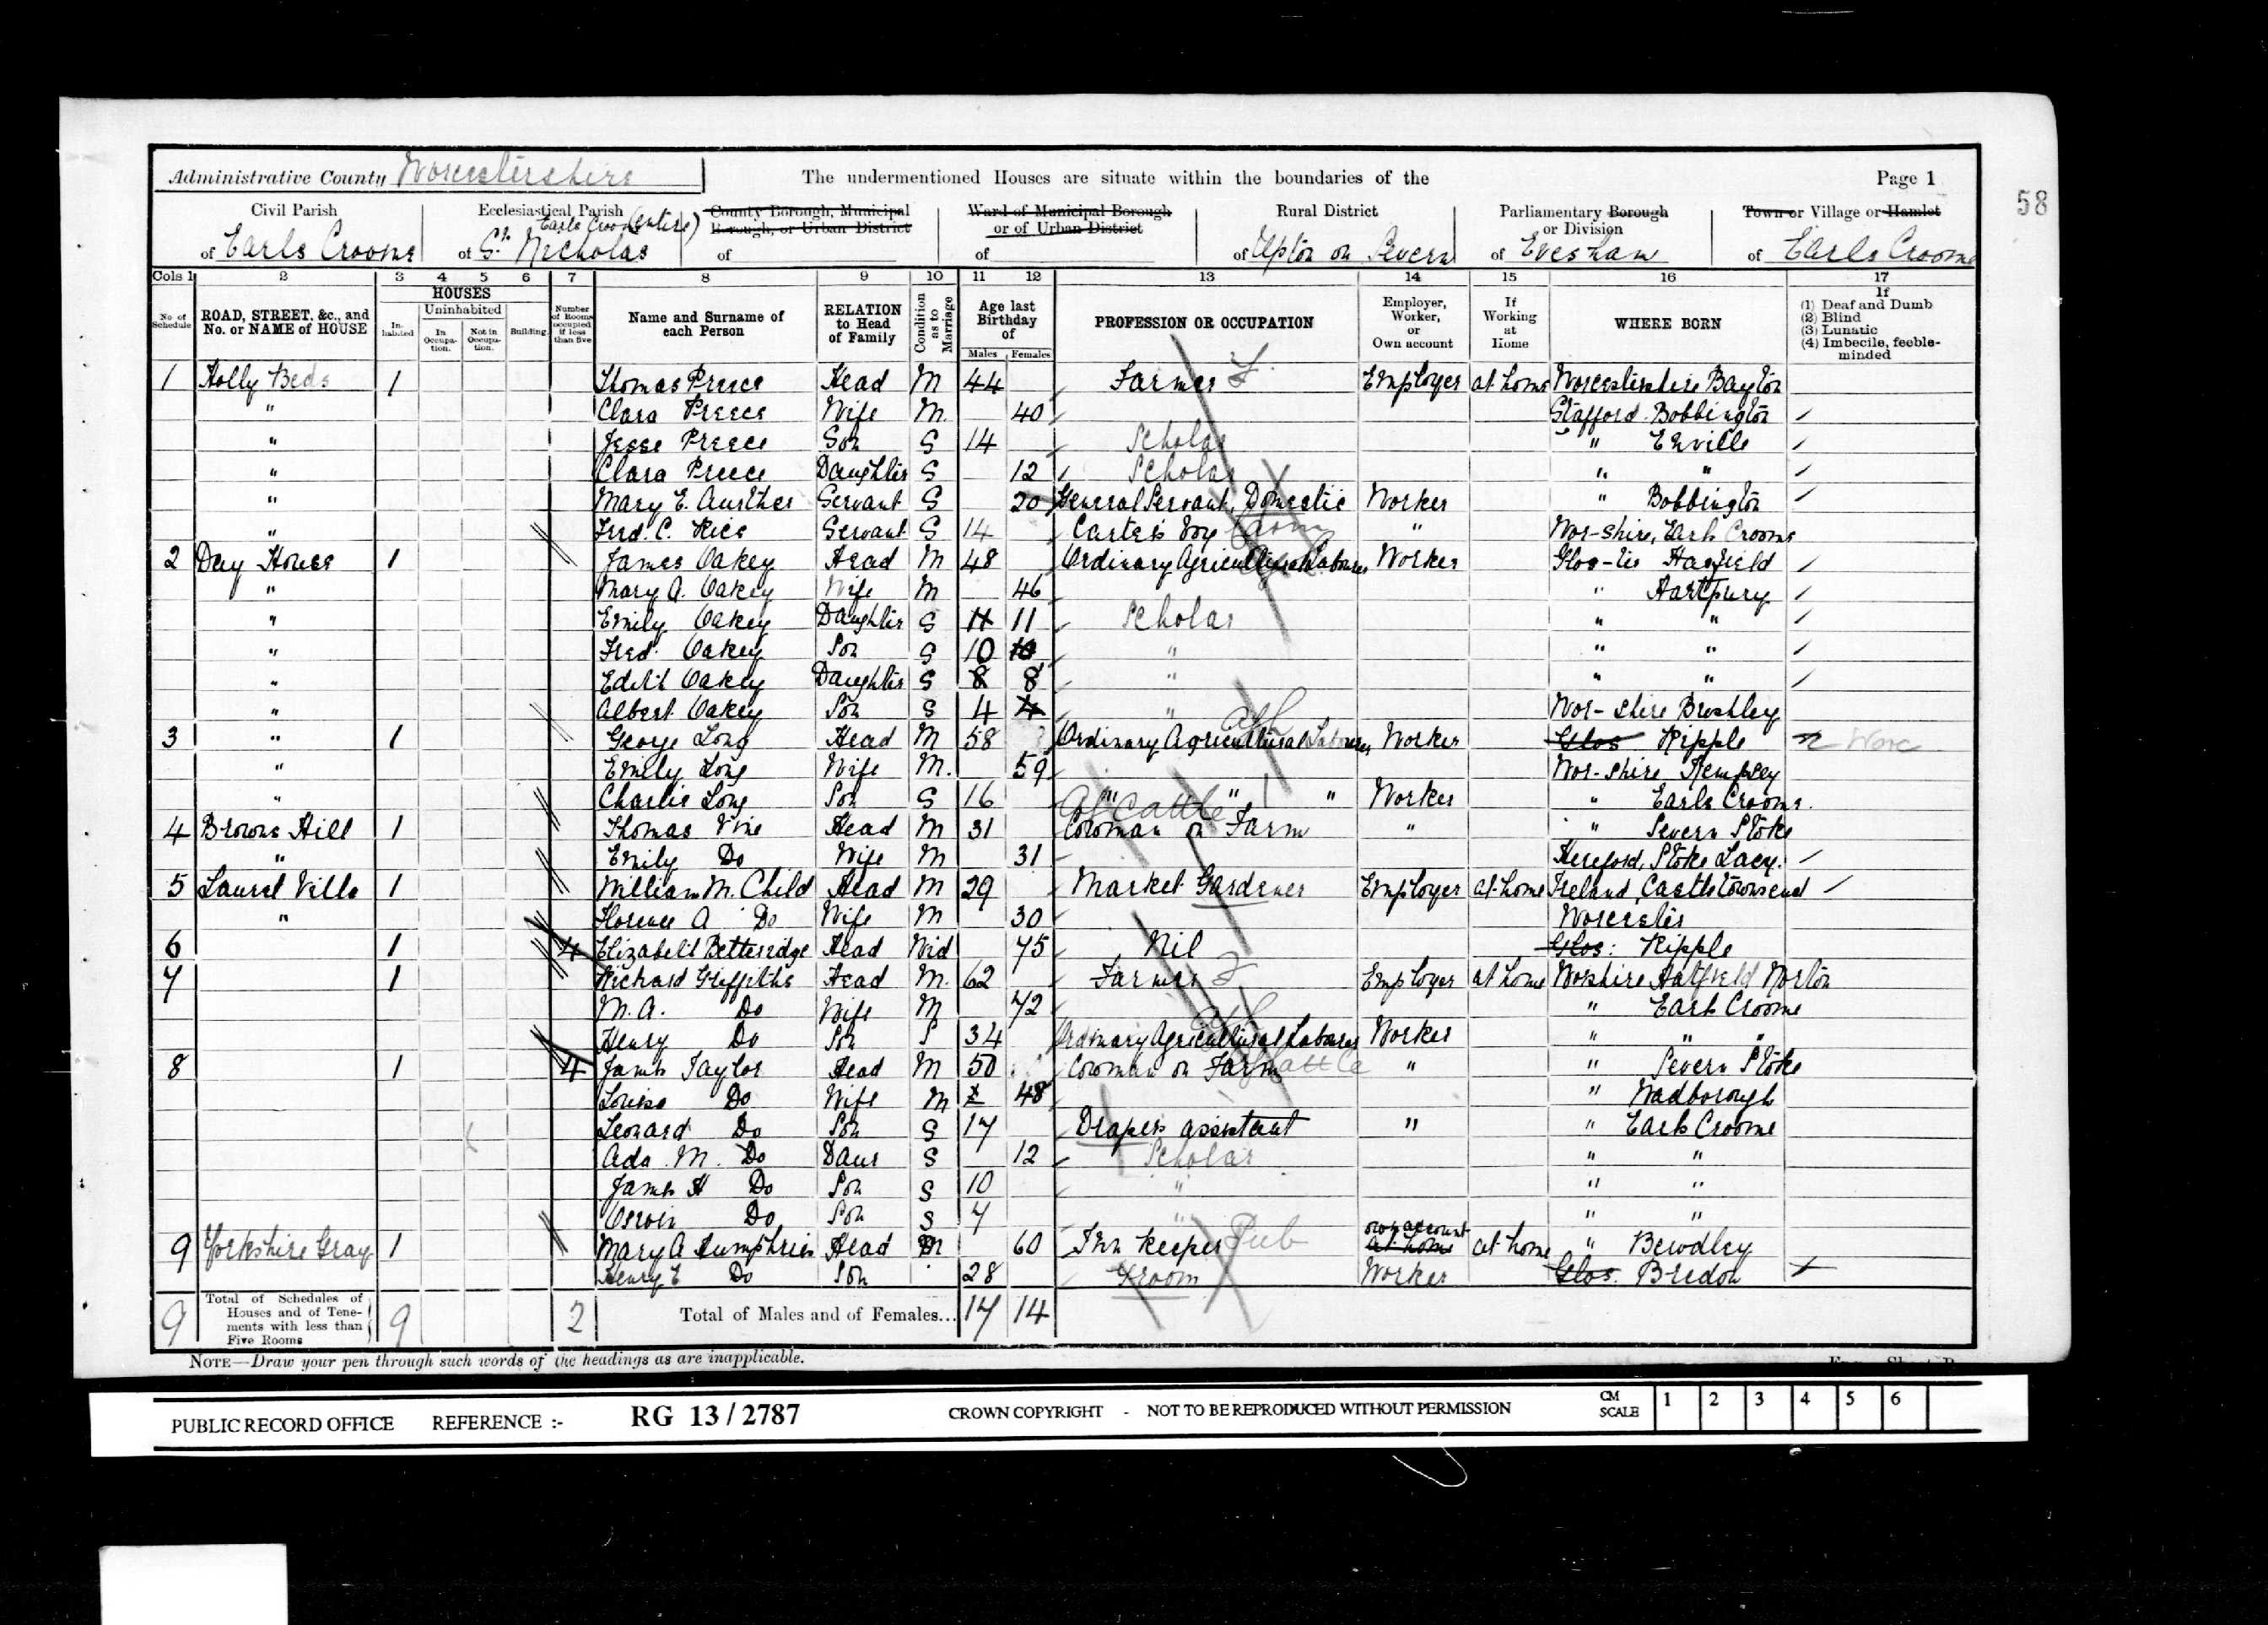 Administrative County Worcestershire The undermentioned Houses are situate within the boundaries of the Page 1
58
Civil Parish Ecclesiastical Parish County Borough, Municipal Borough, or Urban District Ward of Municipal Borough or of Urban District Rural District Parliamentary Borough or Division Town or Village or Hamlet
of Earls Croome of St. Nicholas Earls Croome (entire) of of of Upton on Severn of Evesham of Earls Croome
Cols 1 2 3 4 5 6 7 8 9 10 11 12 13 14 15 16 17
No. of Schedule ROAD, STREET, &c., and No. or NAME of HOUSE HOUSES Inhabited Uninhabited In Occupation. Not in Occupation. Building. Number of Rooms occupied if less than five Name and Surname of each Person RELATION to Head of Family Condition as to Marriage Age last Birthday of Males Females PROFESSION OR OCCUPATION Employer, Worker, or Own account If Working at Home WHERE BORN If (1) Deaf and Dumb (2) Blind (3) Lunatic (4) Imbecile, feeble-minded
1 Holly Beds 1 Thomas Preece Head M 44 Farmer F. Employer at home Worcestershire Bayton
" Clara Preece Wife M. 40 Stafford Bobbington
" Jesse Preece Son S 14 Scholar " Enville
" Clara Preece Daughter S 12 Scholar " "
" Mary E. Servant S 20 General Servant, Domestic Worker " Bobbington
" Fred. C. Rice Servant S 14 Carter's boy Farm " Wor-shire, Earls Croome
2 Day House 1 James Oakey Head M 48 Ordinary Agricultural Labourer Worker Glos-ter Hasfield
" Mary A. Oakey Wife M 46 " Hartpury
" Emily Oakey Daughter S 11 11 Scholar " "
" Fred. Oakey Son S 10 10 " " "
" Edith Oakey Daughter S 8 8 " " "
" Albert Oakey Son S 4 4 " Wor-shire Bushley
3 " 1 George Long Head M 58 Ordinary Agricultural Labourer Agl Worker Glos Ripple Worc
" Emily Long Wife M. 59 Wor-shire Kempsey
" Charlie Long Son S 16 " " " Worker " Earls Croome.
4 Browns Hill 1 Thomas Vine Head M 31 Cowman on Farm Ag Cattle " " Severn Stoke
" Emily Do Wife M 31 Hereford, Stoke Lacy.
5 Laurel Villa 1 William M. Child Head M 29 Market Gardener Employer at home Ireland, Castletownsend
" Florence A Do Wife M 30 Worcester
6 1 4 Elizabeth Betteridge Head Wid 75 Nil Glos: Ripple
7 1 Richard Griffiths Head M. 62 Farmer F. Employer at home Worshire Hatfield Norton
M. A. Do Wife M 72 " Earls Croome
Henry Do Son S 34 Ordinary Agricultural Labourer Agl Worker " " "
8 1 4 James Taylor Head M 50 Cowman on Farm Ag Cattle " " Severn Stoke
Louisa Do Wife M 48 " Wadborough
Leonard Do Son S 17 Drapers assistant " " Earls Croome
Ada M. Do Daur S 12 Scholar " "
James H Do Son S 10 " " "
Do Son S 7 " " "
9 Yorkshire Gray 1 Mary A Humphries Head M 60 Inn Keeper Pub own account at home at home " Bewdley
Henry E Do Son 28 Groom Worker Glos. Bredon
9 Total of Schedules of Houses and of Tenements with less than Five Rooms 9 2 Total of Males and of Females... 17 14
NOTE—Draw your pen through such words of the headings as are inapplicable.
PUBLIC RECORD OFFICE REFERENCE :- RG 13/2787 CROWN COPYRIGHT - NOT TO BE REPRODUCED WITHOUT PERMISSION CM SCALE 1 2 3 4 5 6